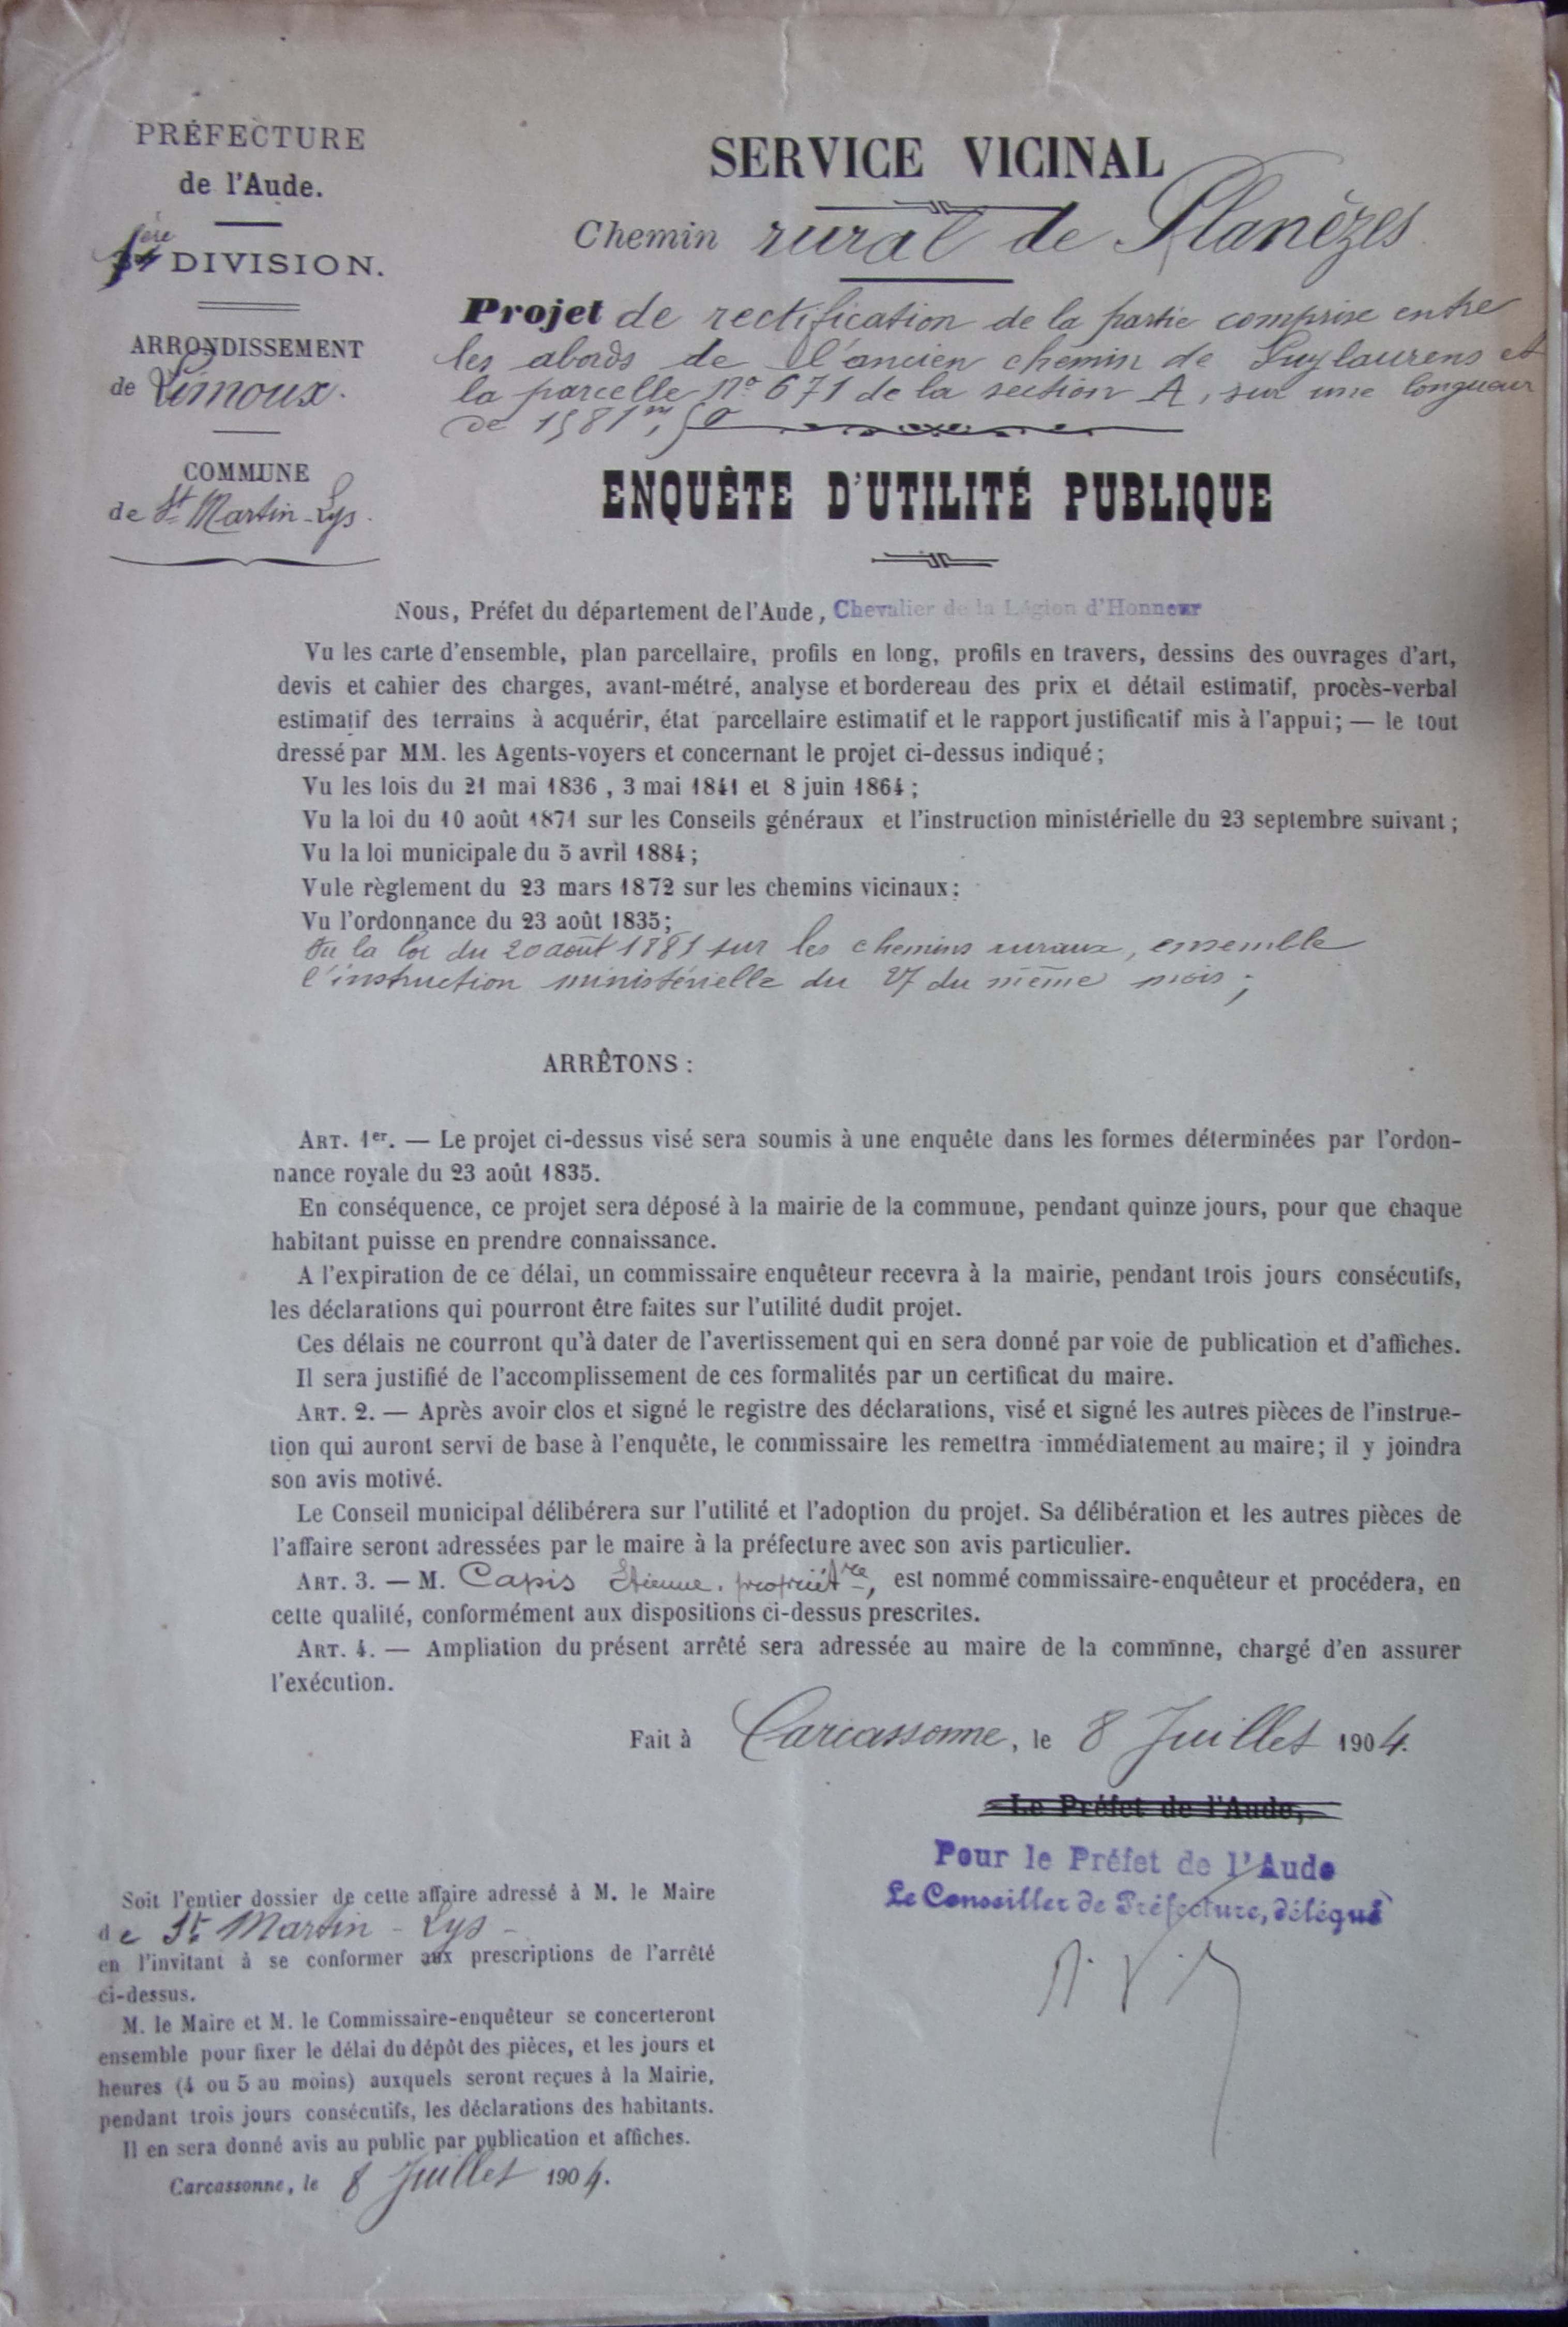 PRÉFECTURE
de l'Aude.
1ère DIVISION.
ARRONDISSEMENT
de Limoux.
COMMUNE
de St Martin-Lys.
SERVICE VICINAL
Chemin rural de Planèzes
Projet de rectification de la partie comprise entre
les abords de l'ancien chemin de Puylaurens et
la parcelle No 671 de la section A, sur une longueur
de 1581m,50
ENQUÊTE D'UTILITÉ PUBLIQUE
Nous, Préfet du département de l'Aude, Chevalier de la Légion d'Honneur
Vu les carte d'ensemble, plan parcellaire, profils en long, profils en travers, dessins des ouvrages d'art,
devis et cahier des charges, avant-métré, analyse et bordereau des prix et détail estimatif, procès-verbal
estimatif des terrains à acquérir, état parcellaire estimatif et le rapport justificatif mis à l'appui; — le tout
dressé par MM. les Agents-voyers et concernant le projet ci-dessus indiqué;
Vu les lois du 21 mai 1836, 3 mai 1841 et 8 juin 1864;
Vu la loi du 10 août 1871 sur les Conseils généraux et l'instruction ministérielle du 23 septembre suivant;
Vu la loi municipale du 5 avril 1884;
Vule règlement du 23 mars 1872 sur les chemins vicinaux;
Vu l'ordonnance du 23 août 1835;
Vu la loi du 20 août 1881 sur les chemins ruraux, ensemble
l'instruction ministérielle du 27 du même mois;
ARRÊTONS :
ART. 1er. — Le projet ci-dessus visé sera soumis à une enquête dans les formes déterminées par l'ordon-
nance royale du 23 août 1835.
En conséquence, ce projet sera déposé à la mairie de la commune, pendant quinze jours, pour que chaque
habitant puisse en prendre connaissance.
A l'expiration de ce délai, un commissaire enquêteur recevra à la mairie, pendant trois jours consécutifs,
les déclarations qui pourront être faites sur l'utilité dudit projet.
Ces délais ne courront qu'à dater de l'avertissement qui en sera donné par voie de publication et d'affiches.
Il sera justifié de l'accomplissement de ces formalités par un certificat du maire.
ART. 2. — Après avoir clos et signé le registre des déclarations, visé et signé les autres pièces de l'instruc-
tion qui auront servi de base à l'enquête, le commissaire les remettra immédiatement au maire; il y joindra
son avis motivé.
Le Conseil municipal délibérera sur l'utilité et l'adoption du projet. Sa délibération et les autres pièces de
l'affaire seront adressées par le maire à la préfecture avec son avis particulier.
ART. 3. — M. Capis Etienne, propriétre, est nommé commissaire-enquêteur et procédera, en
cette qualité, conformément aux dispositions ci-dessus prescrites.
ART. 4. — Ampliation du présent arrêté sera adressée au maire de la commnne, chargé d'en assurer
l'exécution.
Fait à Carcassonne, le 8 Juillet 1904.
Le Préfet de l'Aude,
Pour le Préfet de l'Aude
Le Conseiller de Préfecture, délégué
Soit l'entier dossier de cette affaire adressé à M. le Maire
de St Martin-Lys
en l'invitant à se conformer aux prescriptions de l'arrêté
ci-dessus.
M. le Maire et M. le Commissaire-enquêteur se concerteront
ensemble pour fixer le délai du dépôt des pièces, et les jours et
heures (4 ou 5 au moins) auxquels seront reçues à la Mairie,
pendant trois jours consécutifs, les déclarations des habitants.
Il en sera donné avis au public par publication et affiches.
Carcassonne, le 8 Juillet 1904.